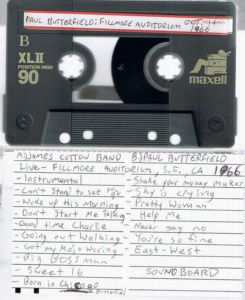 PAUL BUTTERFIELD: FILLMORE AUDITORIUM
1966
B
XLII
POSITION HIGH
90
maxell
A) JAMES COTTON BAND B) PAUL BUTTERFIELD
Live - FILLMORE AUDITORIUM, S.F., CA 1966
- Instrumental
- Can't Stand to see you go
- Woke up this morning
- Don't Start Me Talking
- Good time Charlie
- Going out Walking
- Got my Mojo Working
- Big Boss man
- Sweet 16
- Born in Chicago
- Shake your money maker
- Sky is crying
- Pretty Woman
- Help Me
- Never say no
- You're so fine
- East-West
SOUNDBOARD